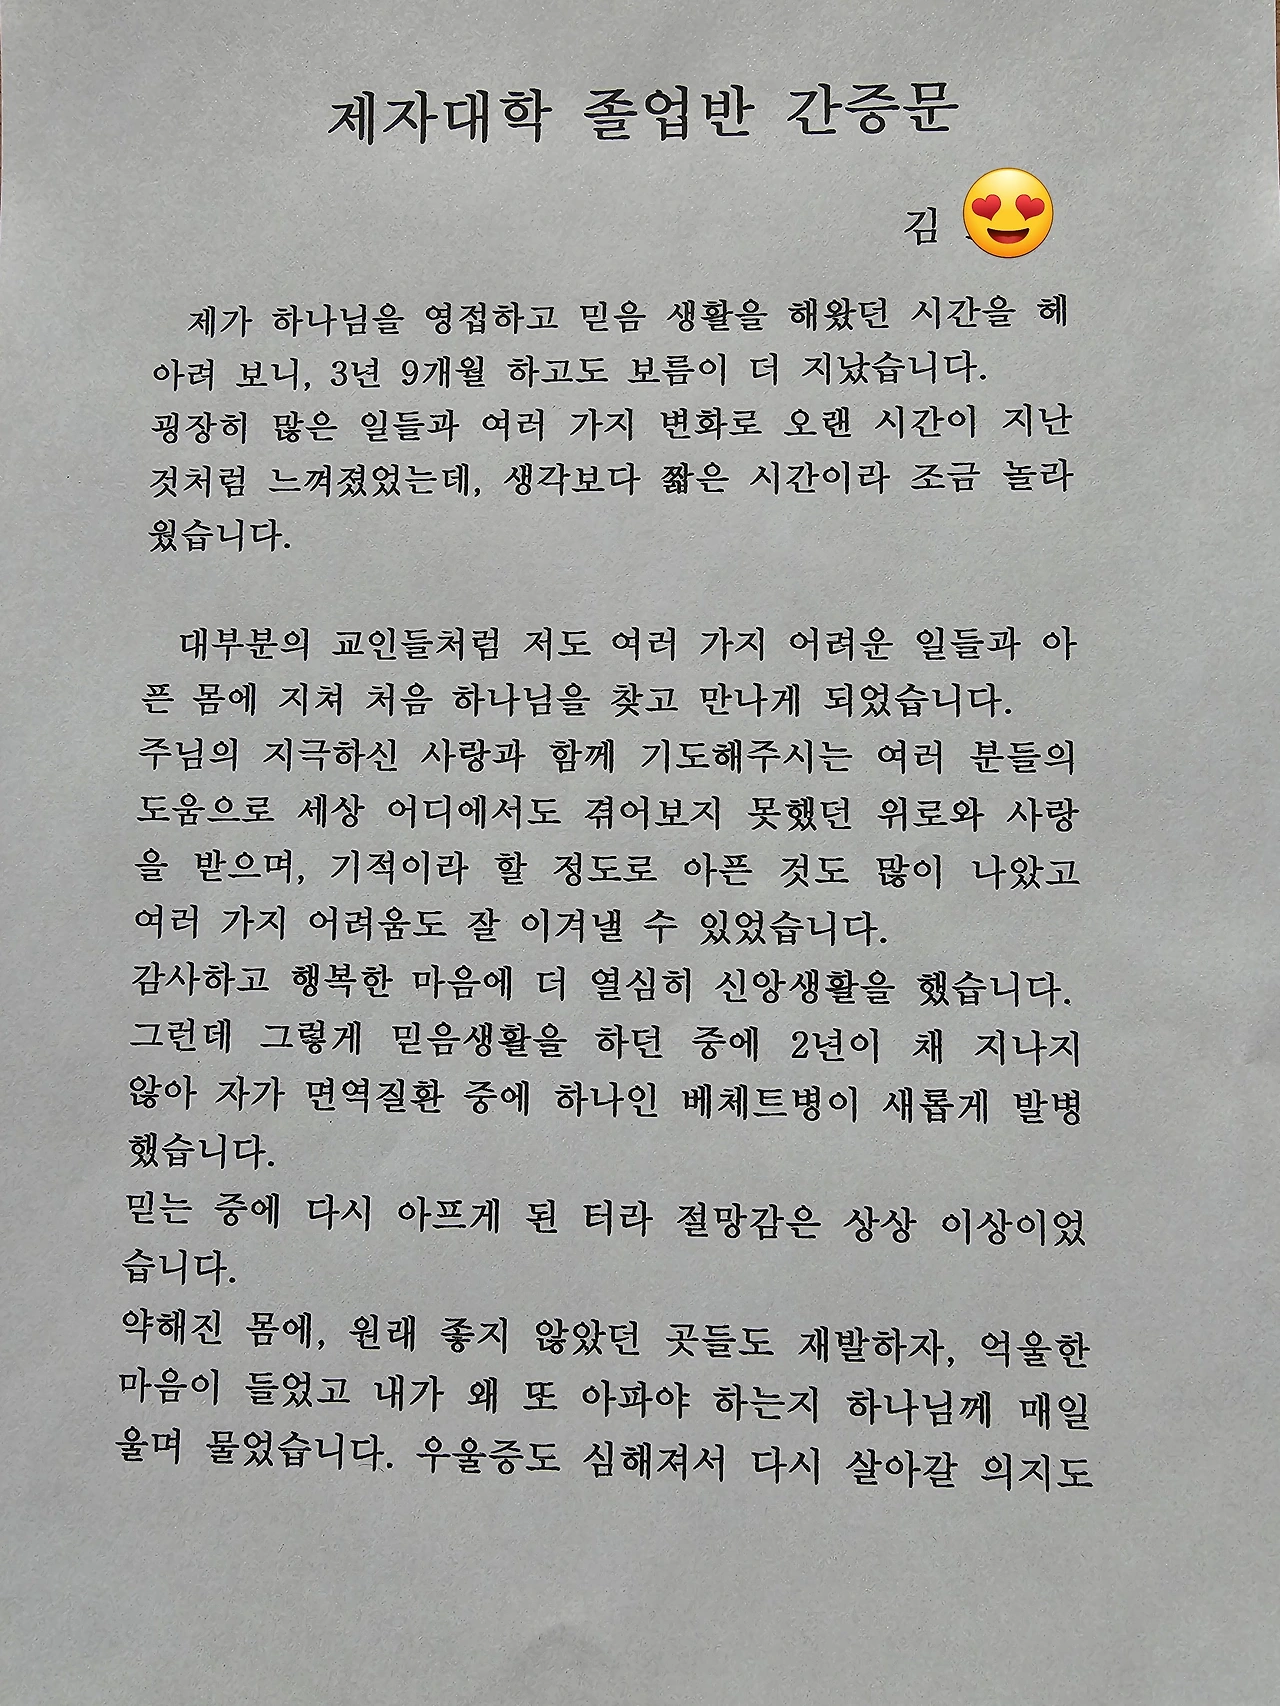 제자대학 졸업반 간증문
김
제가 하나님을 영접하고 믿음 생활을 해왔던 시간을 헤
아려 보니, 3년 9개월 하고도 보름이 더 지났습니다.
굉장히 많은 일들과 여러 가지 변화로 오랜 시간이 지난
것처럼 느껴졌었는데, 생각보다 짧은 시간이라 조금 놀라
웠습니다.
대부분의 교인들처럼 저도 여러 가지 어려운 일들과 아
픈 몸에 지쳐 처음 하나님을 찾고 만나게 되었습니다.
주님의 지극하신 사랑과 함께 기도해주시는 여러 분들의
도움으로 세상 어디에서도 겪어보지 못했던 위로와 사랑
을 받으며, 기적이라 할 정도로 아픈 것도 많이 나았고
여러 가지 어려움도 잘 이겨낼 수 있었습니다.
감사하고 행복한 마음에 더 열심히 신앙생활을 했습니다.
그런데 그렇게 믿음생활을 하던 중에 2년이 채 지나지
않아 자가 면역질환 중에 하나인 베체트병이 새롭게 발병
했습니다.
믿는 중에 다시 아프게 된 터라 절망감은 상상 이상이었
습니다.
약해진 몸에, 원래 좋지 않았던 곳들도 재발하자, 억울한
마음이 들었고 내가 왜 또 아파야 하는지 하나님께 매일
울며 물었습니다. 우울증도 심해져서 다시 살아갈 의지도